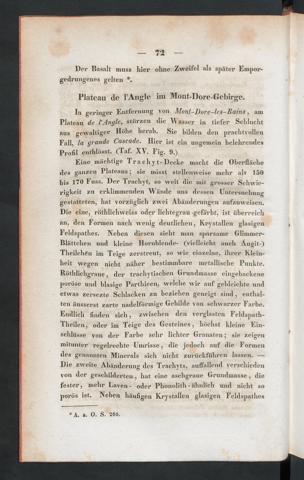 — 72 —
Der Basalt muss hier ohne Zweifel als später Empor-
gedrungenes gelten *.
Plateau de l'Angle im Mont-Dore-Gebirge.
In geringer Entfernung von Mont-Dore-les-Bains, am
Plateau de l'Angle, stürzen die Wasser in tiefer Schlucht
aus gewaltiger Höhe herab. Sie bilden den prachtvollen
Fall, la grande Cascade. Hier ist ein ungemein belehrendes
Profil entblösst. (Taf. XV. Fig. 9.)
Eine mächtige Trachyt-Decke macht die Oberfläche
des ganzen Plateaus; sie misst stellenweise mehr als 150
bis 170 Fuss. Der Trachyt, so weit die mit grosser Schwie-
rigkeit zu erklimmenden Wände uns dessen Untersuchung
gestatteten, hat vorzüglich zwei Abänderungen aufzuweisen.
Die eine, röthlichweiss oder lichtegrau gefärbt, ist überreich
an, den Formen nach wenig deutlichen, Krystallen glasigen
Feldspathes. Neben diesen sieht man sparsame Glimmer-
Blättchen und kleine Hornblende- (vielleicht auch Augit-)
Theilchen im Teige zerstreut, so wie einzelne, ihrer Klein-
heit wegen nicht näher bestimmbare metallische Punkte.
Röthlichgraue, der trachytischen Grundmasse eingebackene
poröse und blasige Parthieen, welche wir auf gebleichte und
etwas zersezte Schlacken zu beziehen geneigt sind, enthal-
ten äusserst zarte nadelförmige Gebilde von schwarzer Farbe.
Endlich finden sich, zwischen den verglasten Feldspath-
Theilen, oder im Teige des Gesteines, höchst kleine Ein-
schlüsse von der Farbe sehr lichter Granaten; sie zeigen
mitunter regelrechte Umrisse, die jedoch auf die Formen
des genannten Minerals sich nicht zurückführen lassen. —
Die zweite Abänderung des Trachyts, auffallend verschieden
von der geschilderten, hat eine aschgraue Grundmasse, die
fester, mehr Laven- oder Phonolith-ähnlich und nicht so
porös ist. Neben häufigen Krystallen glasigen Feldspathes
* A. a. O. S.